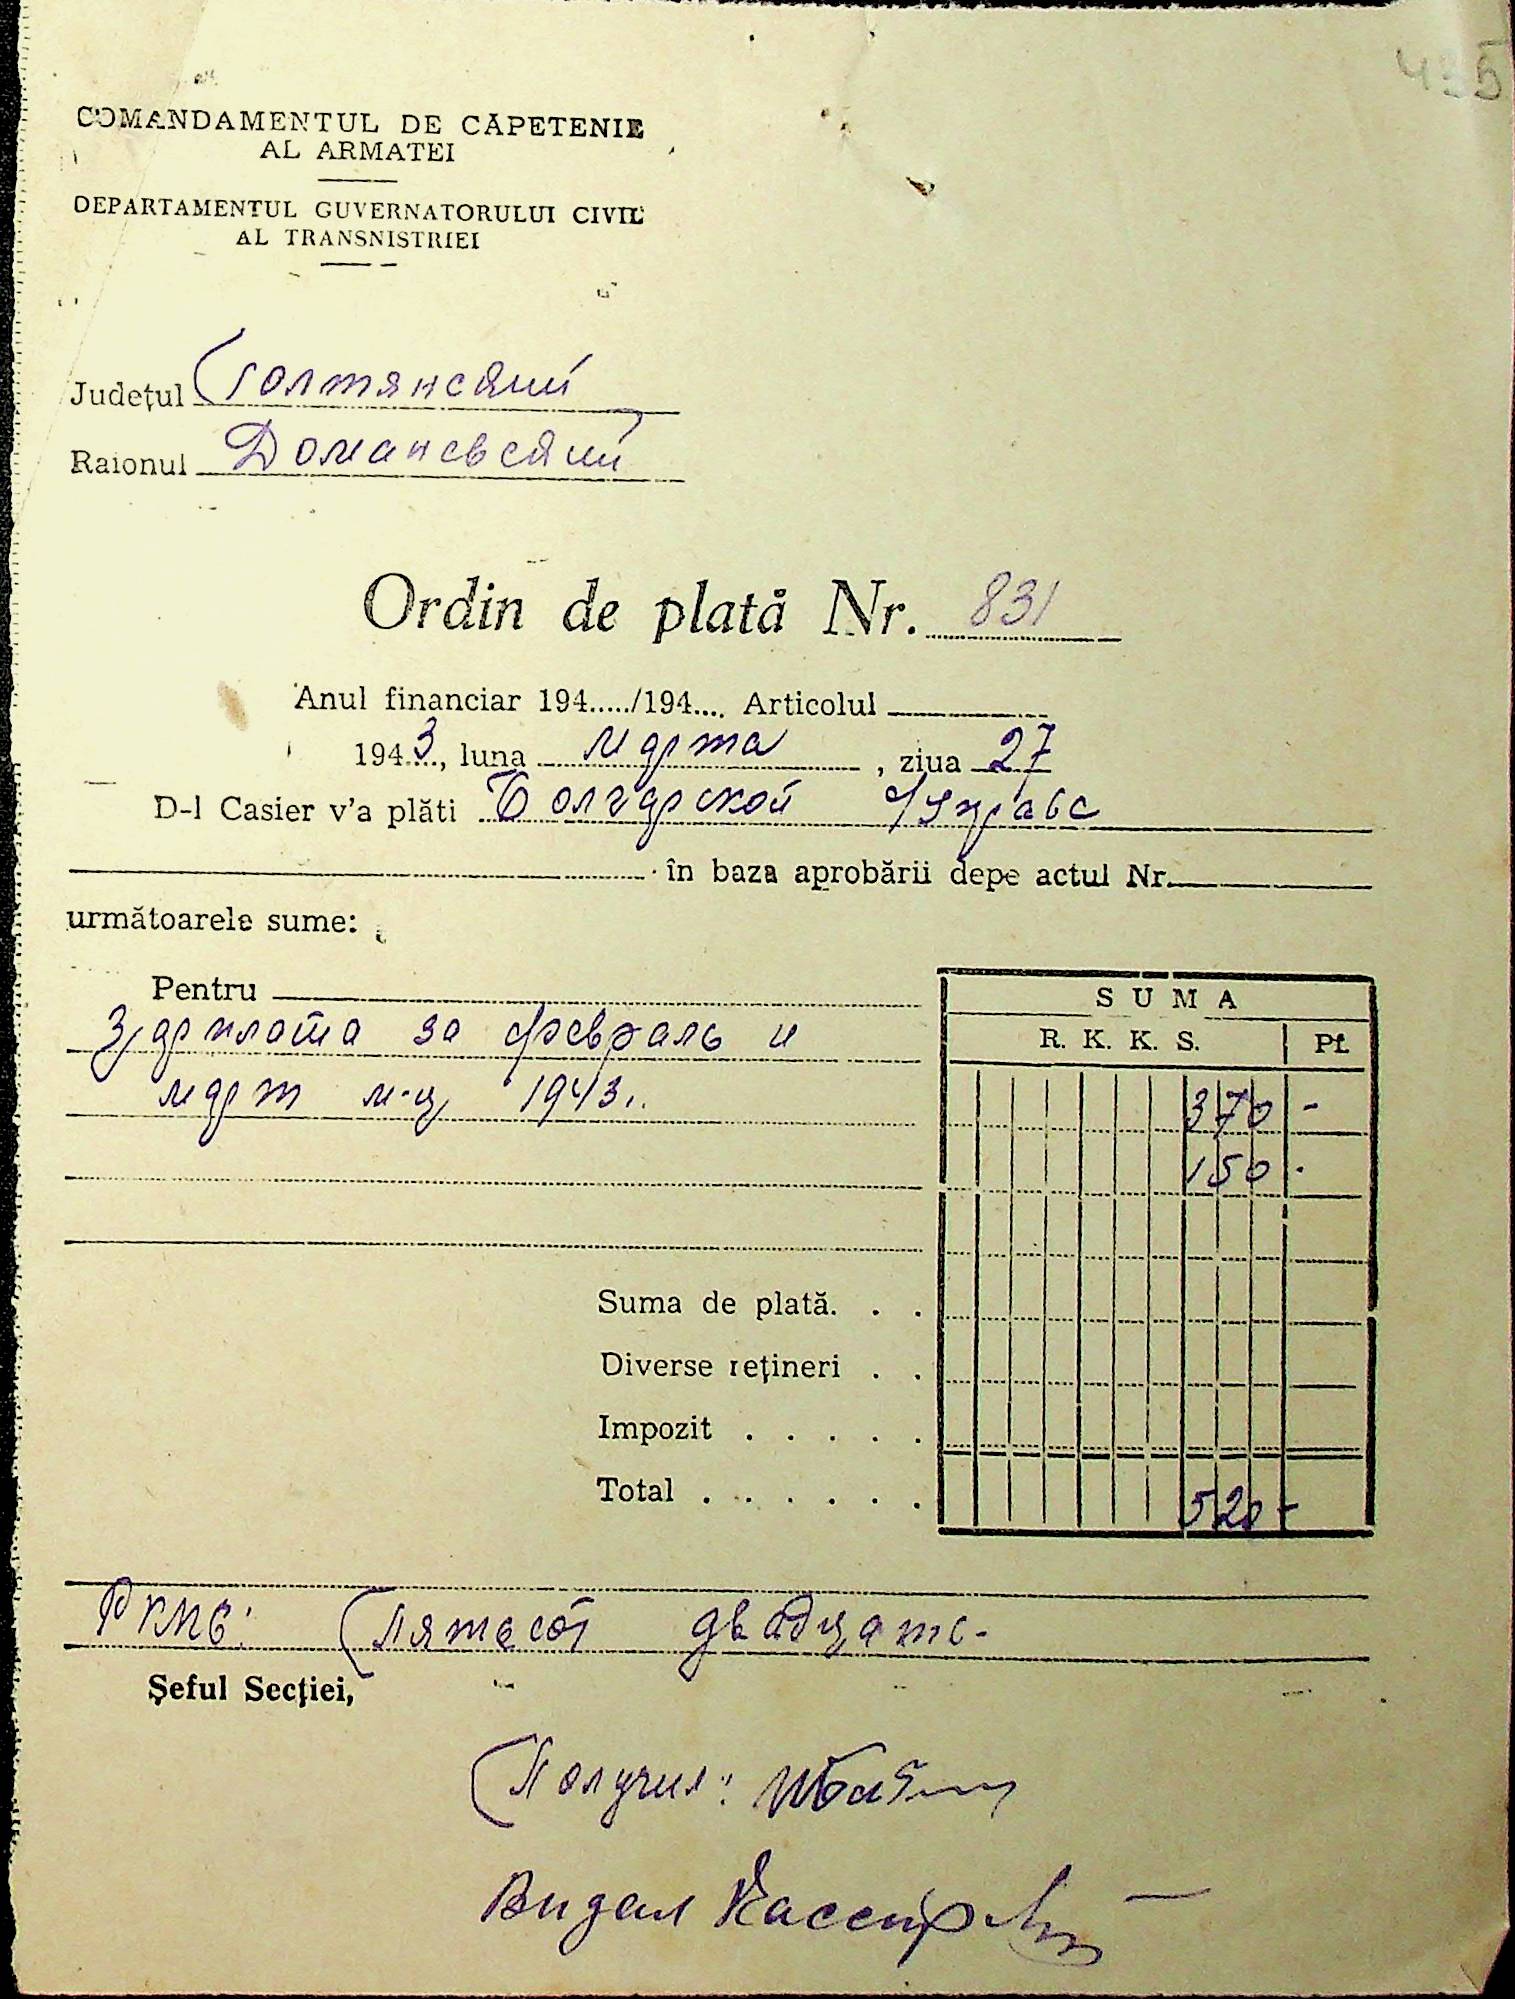 COMANDAMENTUL DE CAPETENIE
AL ARMATEI
DEPARTAMENTUL GUVERNATORULUI CIVIL
AL TRANSNISTRIEI
Județul Голтянский
Raionul Доманевский
Ordin de plată Nr. 831
Anul financiar 194...../194.... Articolul
1943, luna марта, ziua 27
D-l Casier v'a plăti Болгарской Управе
în baza aprobării depe actul Nr.
următoarele sume:
Pentru
Зарплата за февраль и
март м-ц 1943.
SUMA
R. K. K. S. Pf.
370 -
150 -
Suma de plată. . .
Diverse rețineri . .
Impozit . . . . .
Total . . . . . . 520 -
РКМС: Пятьсот двадцать-
Șeful Secției,
Получил:
Видал Кассир